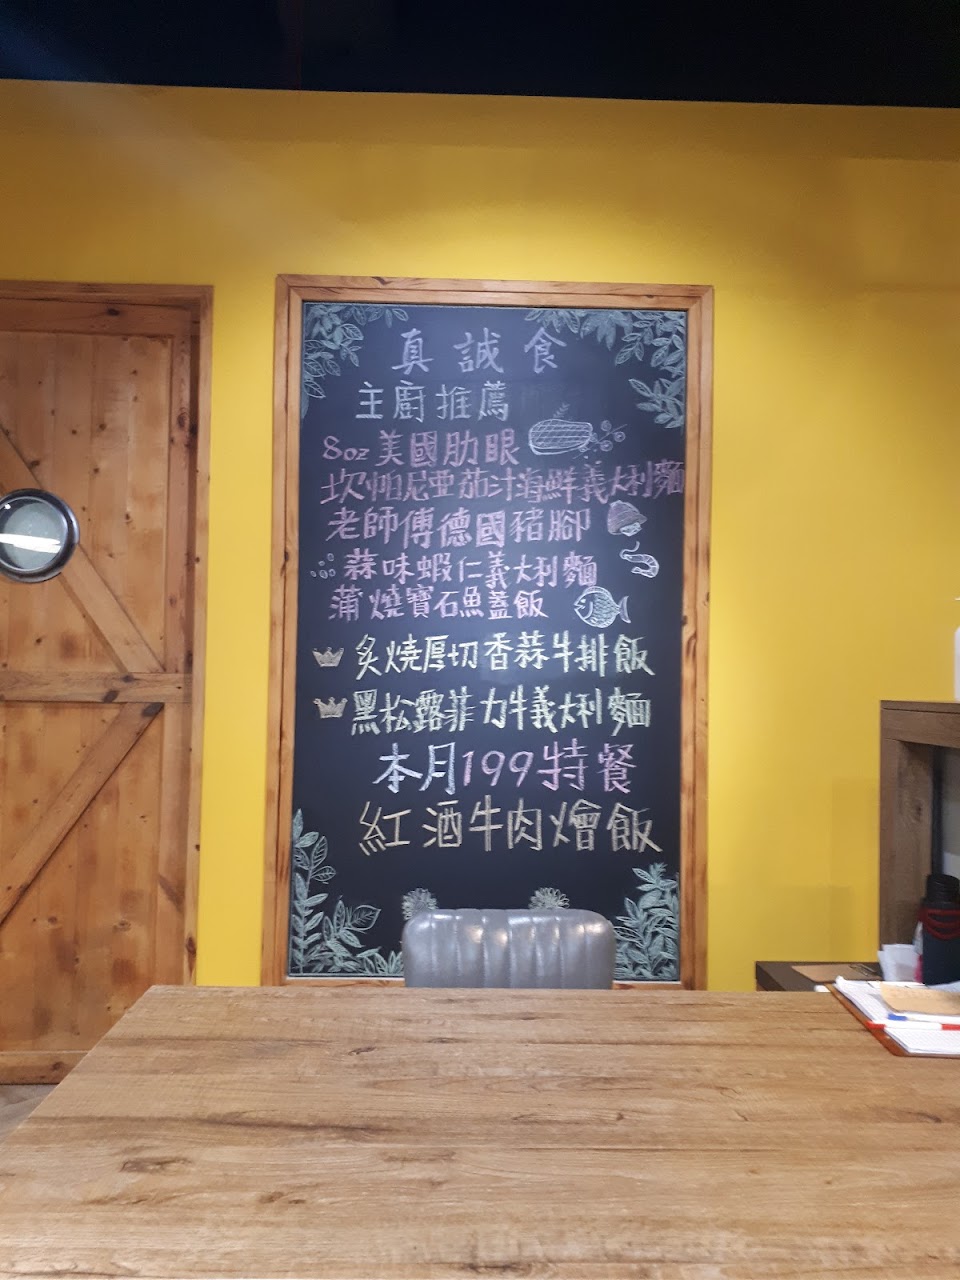 真誠食
主廚推薦
8oz美國肋眼
坎帕尼亞茄汁海鮮義大利麵
老師傅德國豬腳
蒜味蝦仁義大利麵
蒲燒寶石魚蓋飯
炙燒厚切香蒜牛排飯
黑松露菲力牛義大利麵
本月199特餐
紅酒牛肉燴飯